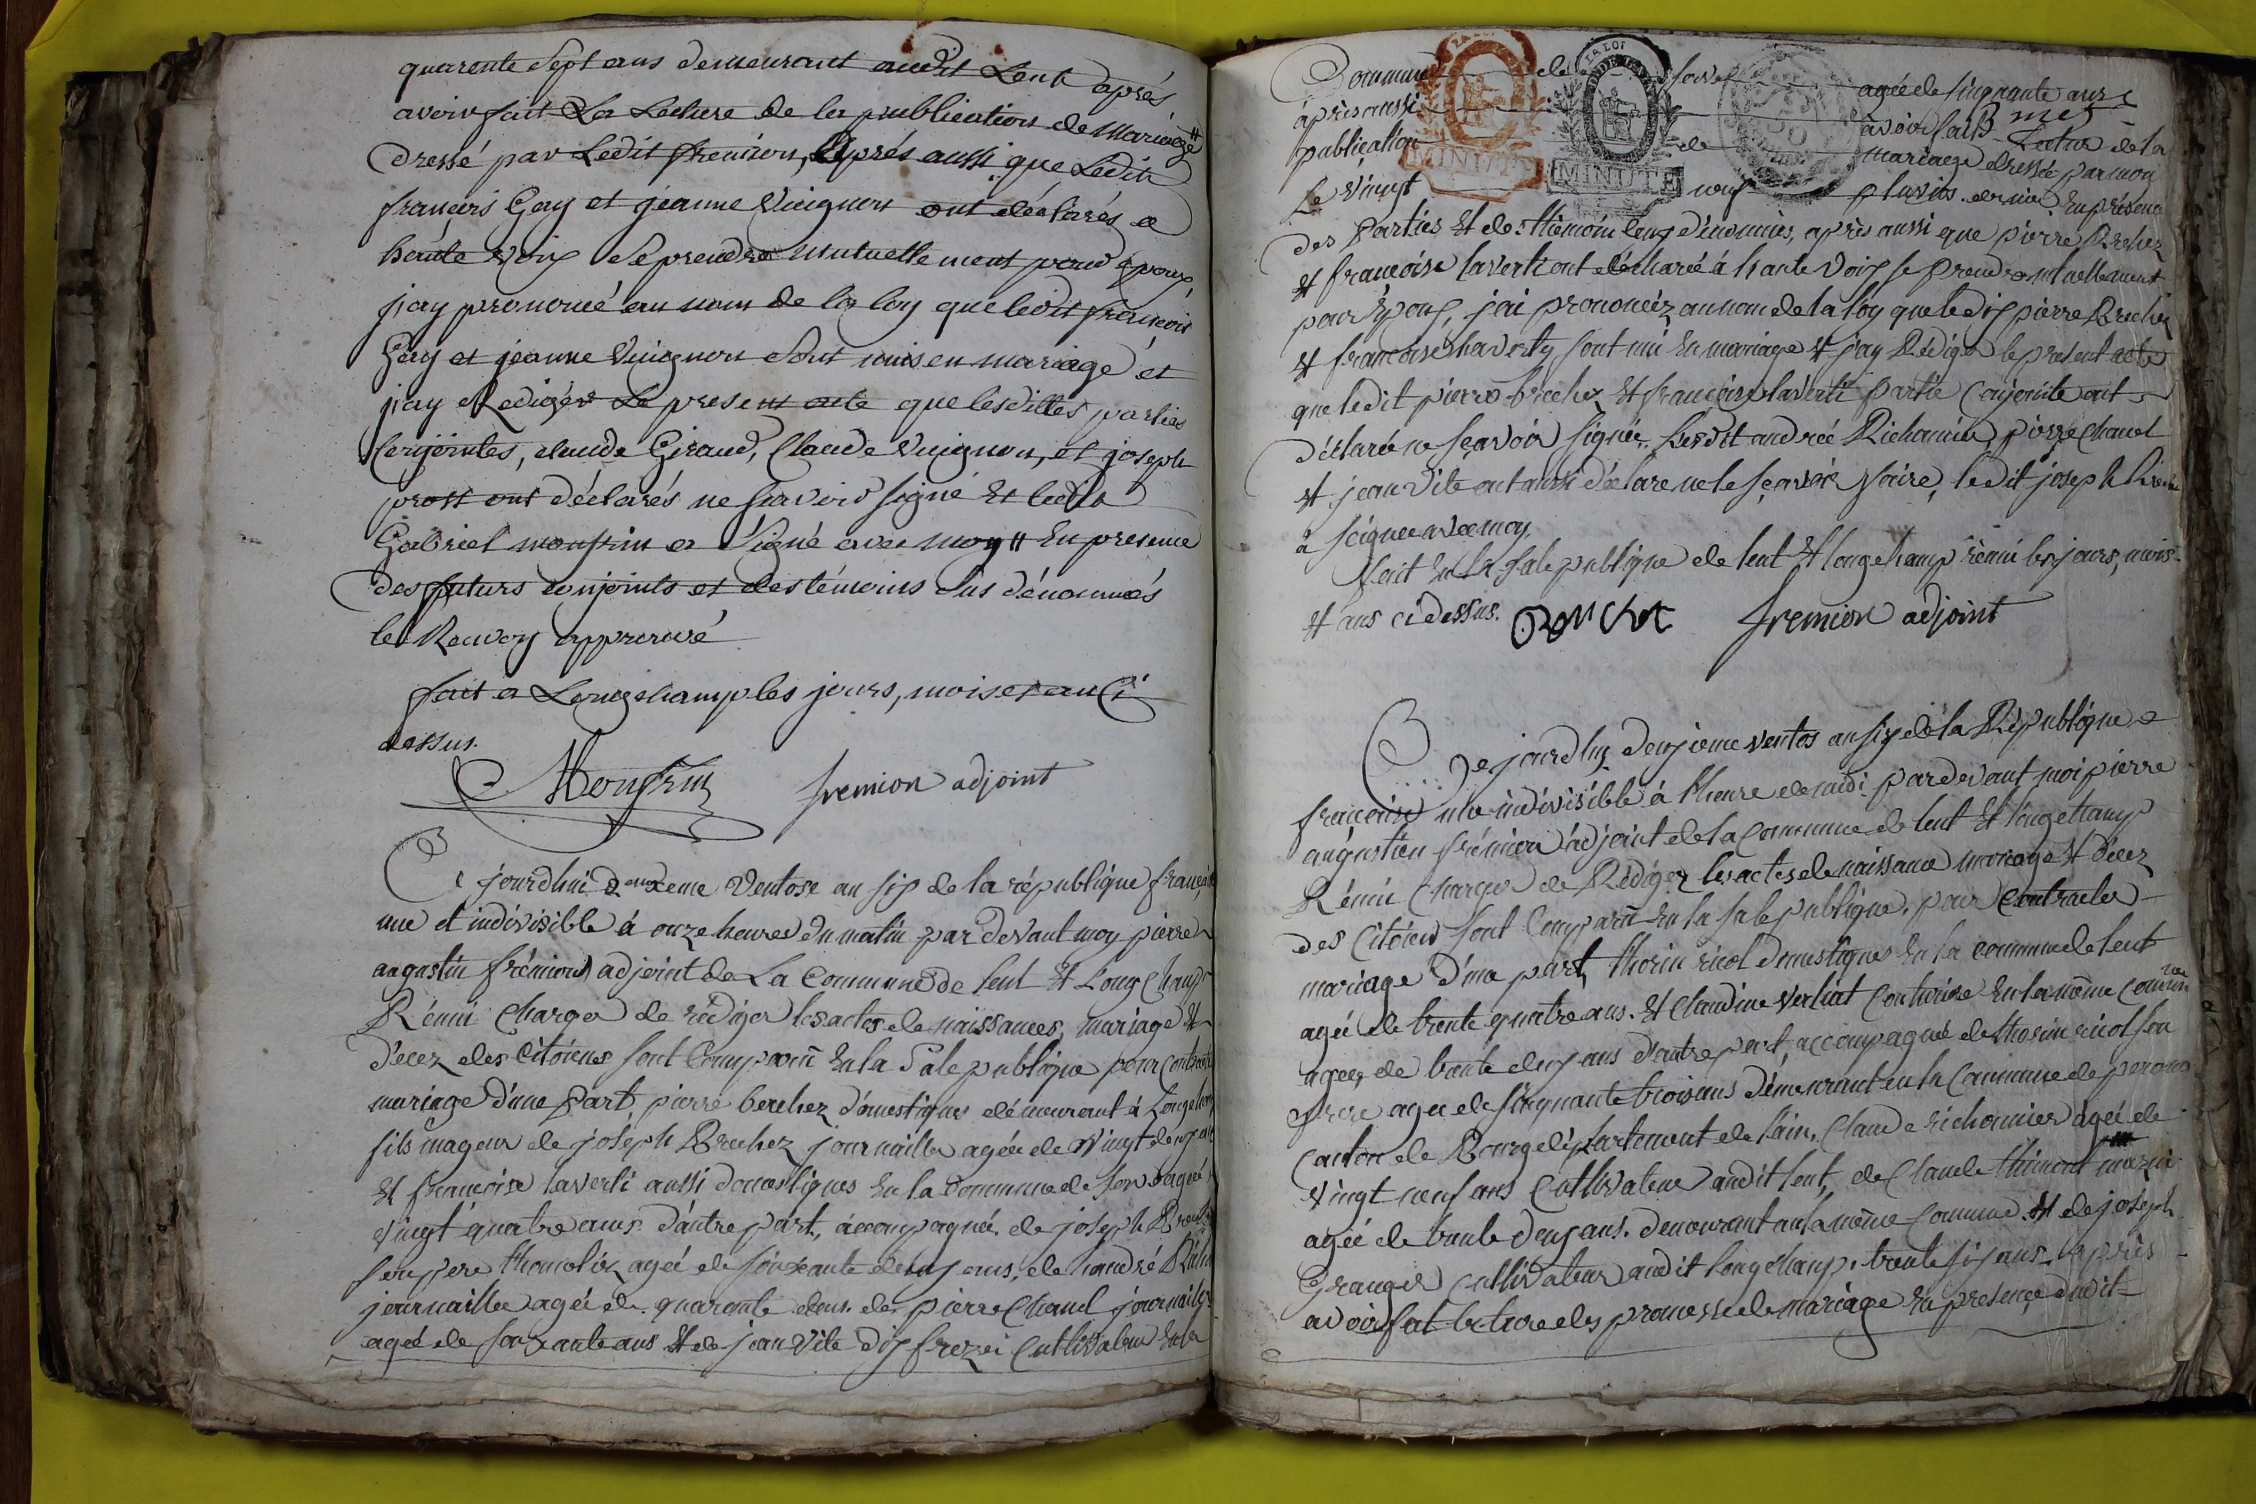 quarente Sept ans demeurant audit Lent après
avoir fait La Lecture de la publication de Mariage #
dressé par Ledit fremion, après aussi que Ledit
françois Gay et jeanne Vuignon ont déclarés a
haute voix Se prendre mutuellement pour epoux,
j'ay prononcé au nom de la loy que ledit françois
Gay et jeanne Vuignon Sont unis en mariage et
j'ay Redigés Le present acte que lesdittes parties
Conjointes, claude Giraud, Claude Vuignon, et joseph
prost ont déclarés ne Savoir signé et ledit
Gabriel monfrin a Signé avec moy # En presence
des futurs conjoints et des témoins Sus dénommés
le Renvoy approuvé
fait a Longchamp les jours, mois et an Ci
dessus.
Monfrin fremion adjoint
Ce jourd'hui deuxeme Ventose an six de la république françoise
une et indivisible à onze heures du matin par devant moy pierre
augustin frémion adjoint de La Commune de Lent Et Long Champ
Réuni Charger de rédiger les actes de naissances, mariage Et
décez des Citoiens sont Comparu En la Sale publique pour Contracter
mariage d'une Part, pierre brechez domestiques démeurant à Longchamp
fils mageur de joseph Brechez journailler agée de Vingt deux ans
Et françoise laverti aussi domestiques En la Commune de Servas agée
vingt quatre ans. d'autre part, accompagnée de joseph Brechez
son pere agée de soixante deux ans, de handré
journailler agée de quarante deux. de pierre Chanel journailler
agée de soixante ans Et de jean Vite dix frezei Cultivateur En la
Commune de Servas agée de sinquante ans
après aussi avoir fait Lectur de la
publication de mariage dressée par moy
Le vingt neuf pluvios. dernier En présence
des Parties Et de thiemoin leur dénomines, après aussi que pierre Brechez
Et françoise laverti ont declarée à haute Voix se Prendre mutuellement
pour Epoux, j'ai prononcéz au nom de la loy que ledix pierre Brechez
Et francoise haverty sont uni En mariage Et j'ay Rédiger le present acte
que ledit pierre brechez Et françoise laverti Partie Conjointe ont
Déclarée ne sçavoir signée. Lesdit andrée Richonnier, pierre Chanel
Et jean Vite ont aussi déclare ne le sçavoir faire, ledit joseph
à Seignée avec moy.
fait En la Sale publique de lent Et longchamp réuni les jours, mois
Et ans ci dessus. fremion adjoint
Ce jourdhuy deuxieme ventos an six de la République
françoise une indivisible à l'heure de midi pardevant moi pierre
augustin frémion adjoint de la Commune de lent Et longchamp
Réuni Charger de Rédiger les actes de naissance mariage Et décez
des Citoien sont Comparu En la sale publique, pour Contracter
mariage d'une part, thorin ricol domestiques En la commune de lent
agée de trente quatre ans. Et Claudine verliat Couturiere En la même Commune
agées de trente deux ans d'autre part, accompagné de thorin ricol son
frere agee de sinquante trois ans démeurant en la Commune de peronas
Canton de Bourg département de l'ain, Claude richonnier agée de
vingt neuf ans Cultivateur audit lent, de Claude thimont
agée de trente deux ans. demeurant en la même Commune Et de joseph
Granger cultivateur audit longchamp. trente six ans. après
avoir fait lecture des promesse de mariage En presence dudit
MINUTE
MINUTE
LA LOI